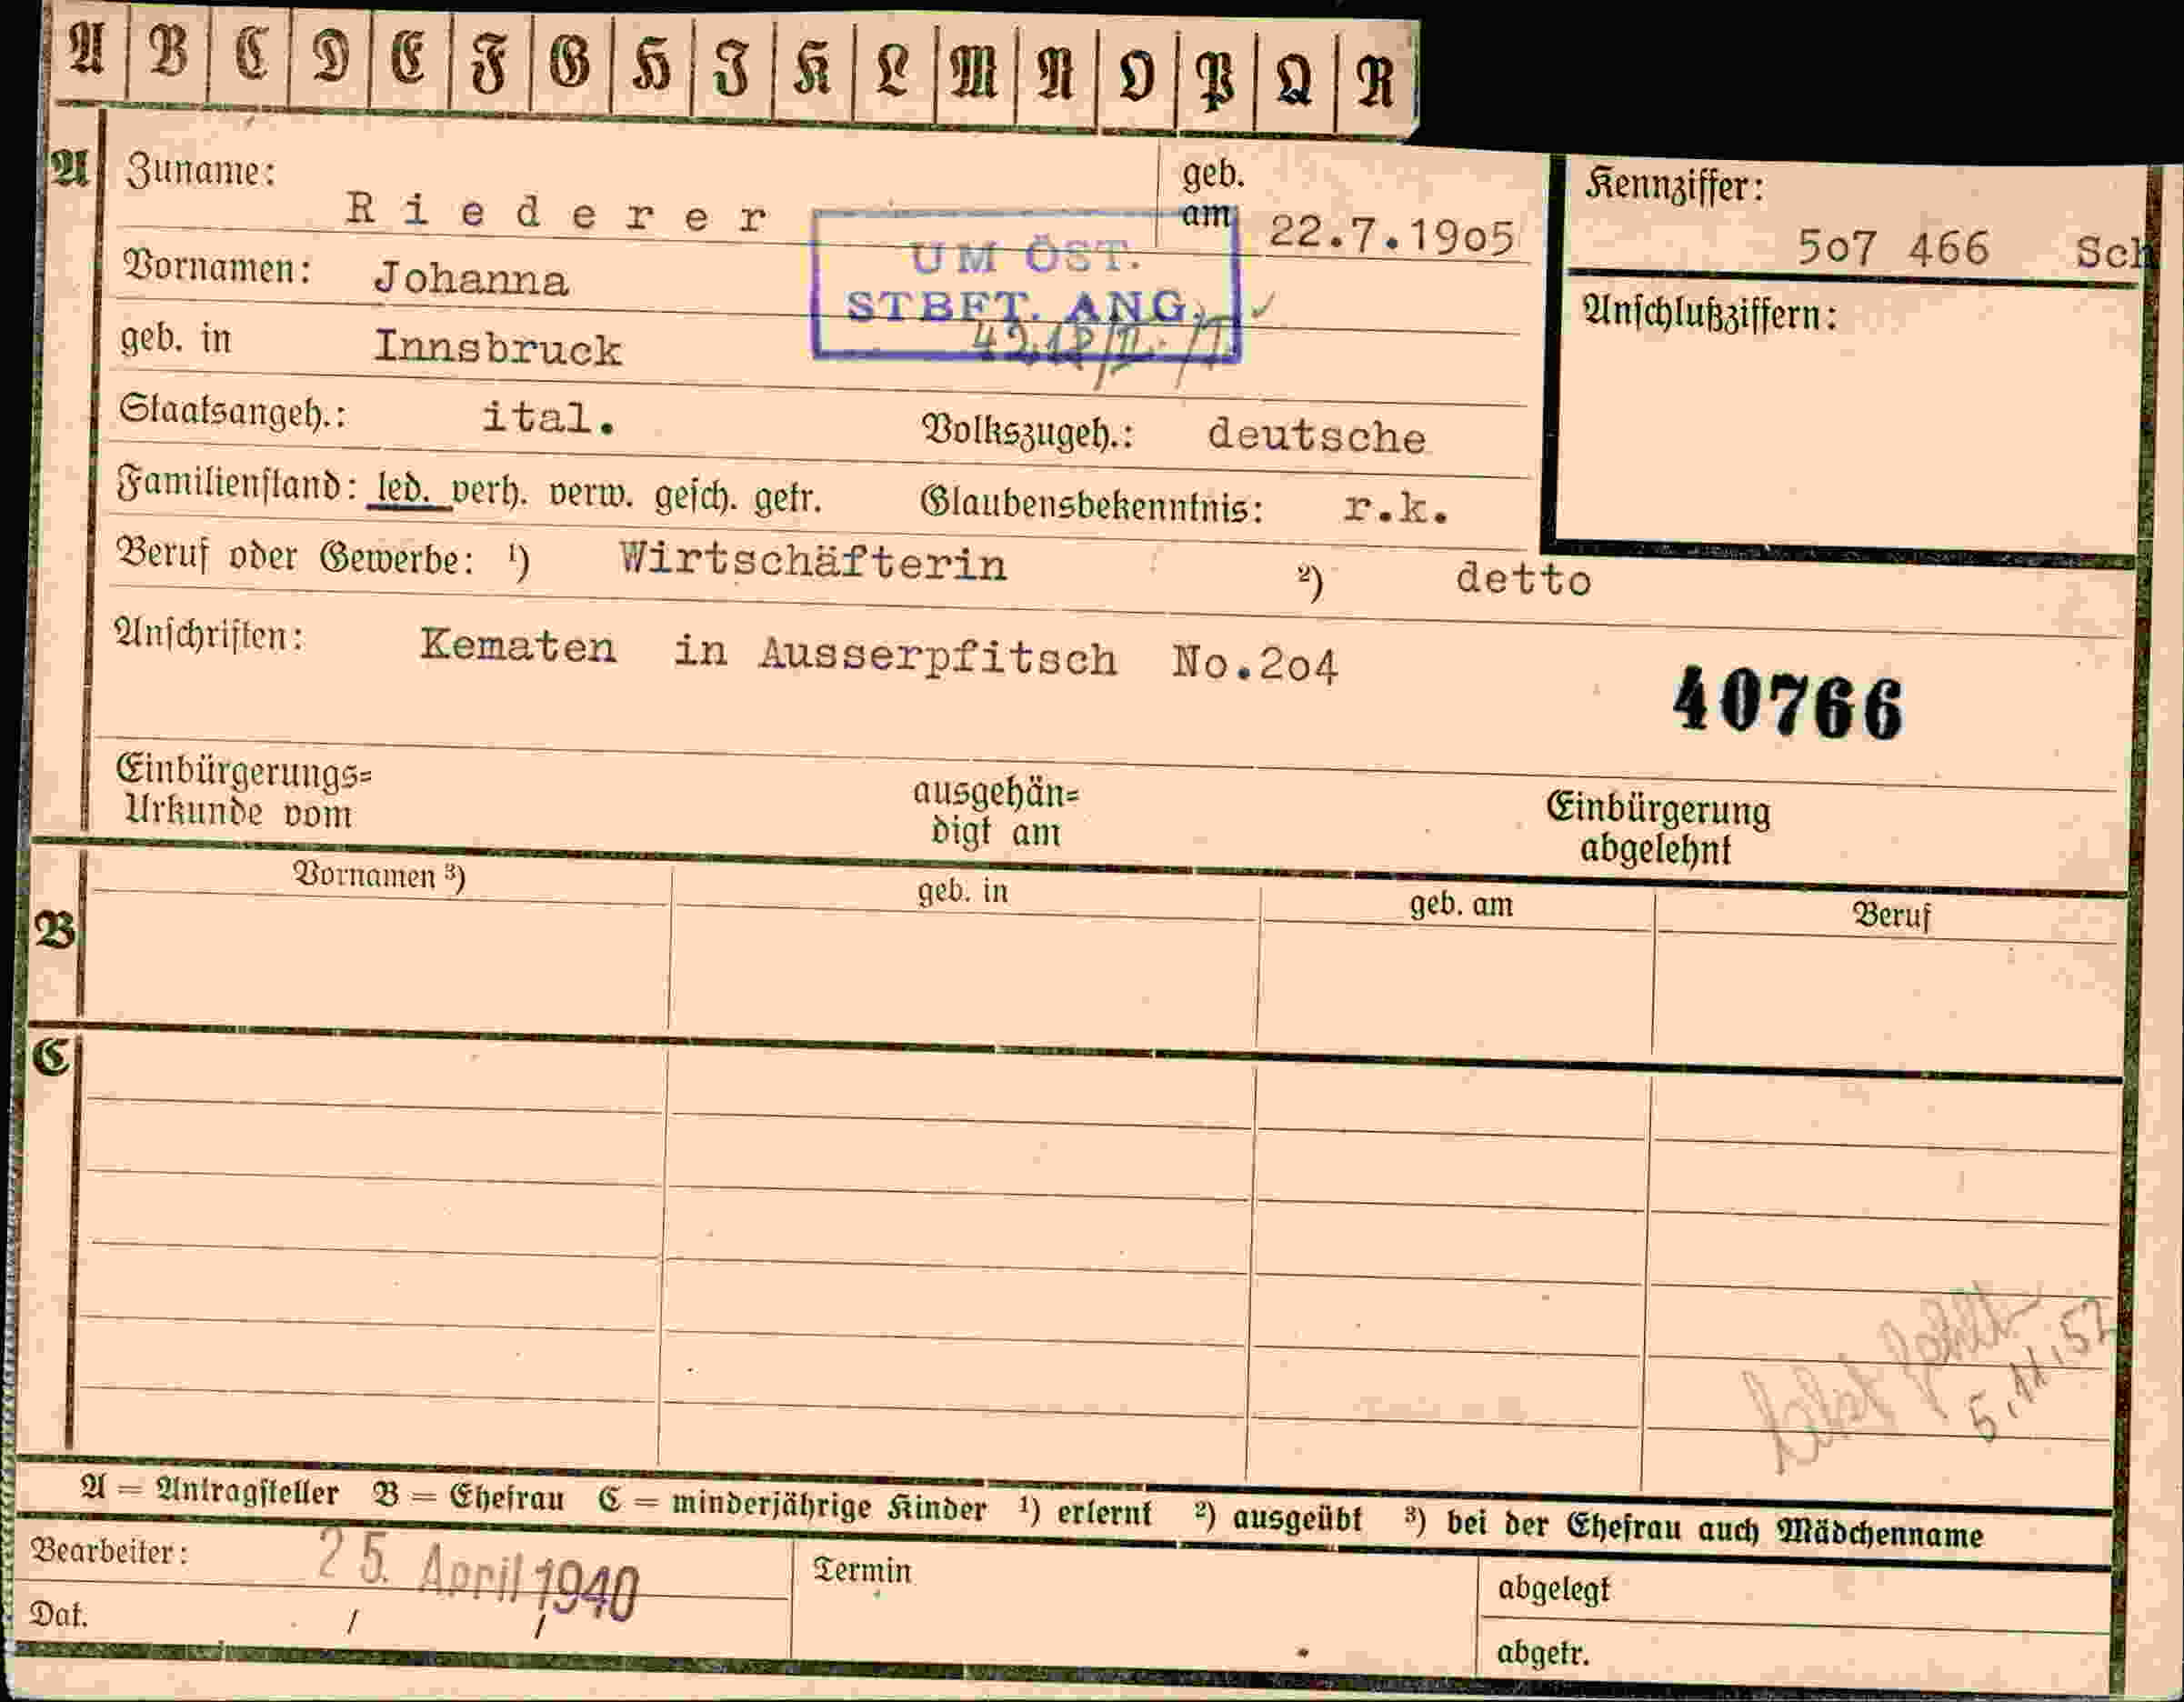 A B C D E F G H I K L M N O P Q R
A Zuname: R i e d e r e r geb. am 22.7.19o5 Kennziffer: 5o7 466 Sch
UM ÖST.
Vornamen: Johanna STBFT. ANG. ✓ Anschlußziffern:
geb. in Innsbruck
Staatsangeh.: ital. Volkszugeh.: deutsche
Familienstand: led. verh. verw. gesch. getr. Glaubensbekenntnis: r.k.
Beruf oder Gewerbe: ¹) Wirtschäfterin ²) detto
Anschriften: Kematen in Ausserpfitsch No.2o4
40766
Einbürgerungs= ausgehän= Einbürgerung
Urkunde vom digt am abgelehnt
Vornamen ³) geb. in geb. am Beruf
B
C
5.11.52
A = Antragsteller B = Ehefrau C = minderjährige Kinder ¹) erlernt ²) ausgeübt ³) bei der Ehefrau auch Mädchenname
Bearbeiter: 25. April 1940 Termin abgelegt
Dat. / / abgetr.